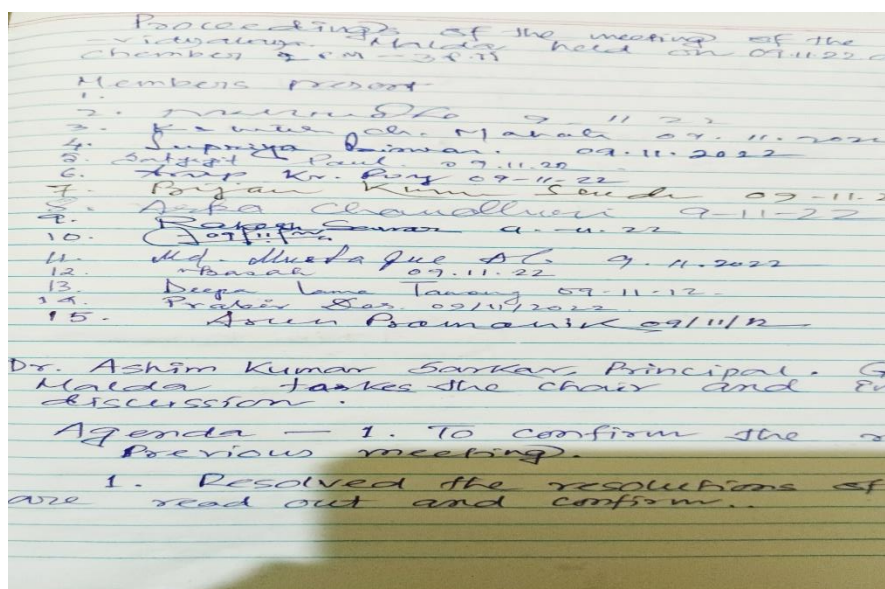 Proceedings of the meeting of the
-vidyalaya. Malda held on 09.11.22
chamber 2 P.M - 3 P.M
Members present
1.
2. 9 11 22
3. Ch. Mahali 09. 11. 2022
4. Supriya Biswas. 09.11.2022
5. Satyajit Paul. 09.11.22
6. Arup Kr. 09-11-22
7. Bijan Kumar 09-11-2
8. Chaudhuri 9-11-22
9. Rakesh Sarkar 9.-11.22
10. 09/11/22
11. Md. Mustaque Ali 9.11.2022
12. Basak 09.11.22
13. Deepa Lama Tamang 09-11-12.
14. Prabir Das. 09/11/2022
15. Arun Pramanik 09/11/12
Dr. Ashim Kumar Sarkar, Principal. G
Malda taakes the chair and
discussion.
Agenda — 1. To confirm the r
Previous meeting.
1. Resolved the resolutions of
are read out and confirm..